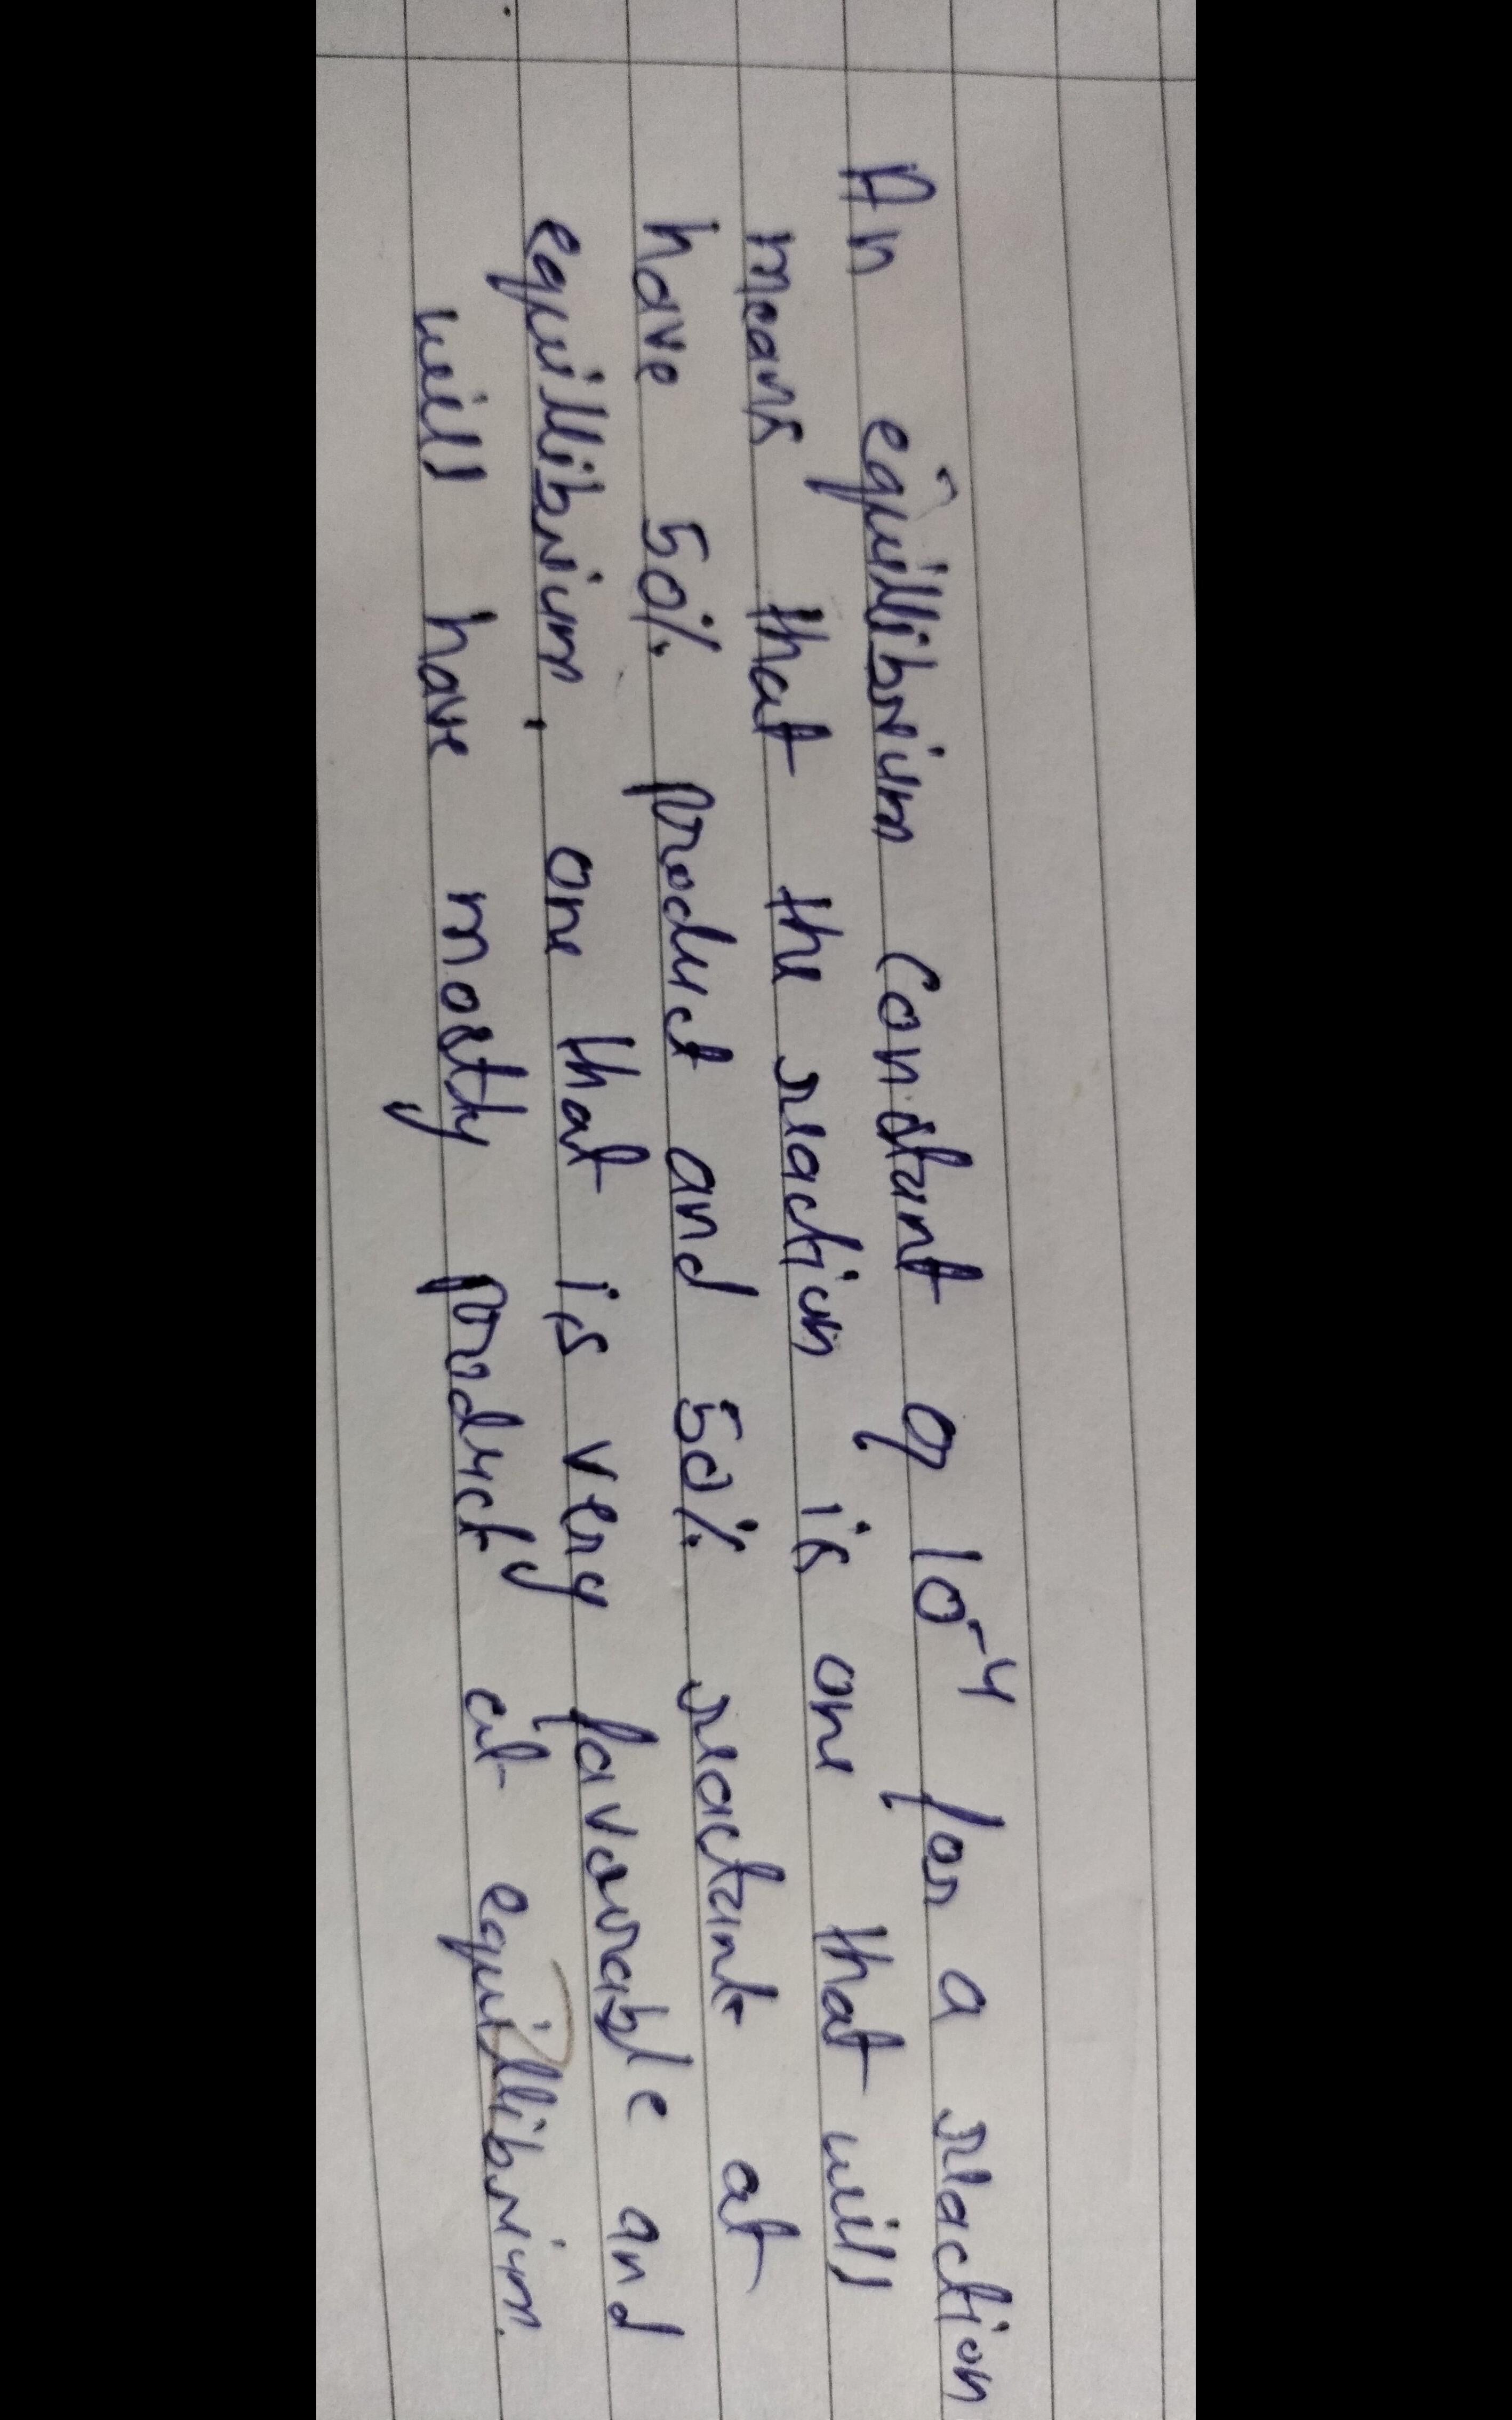 An equillibrium constant of 10-4 for a reaction
means that the reaction is one that will
have 50% product and 50% reactant at
equillibrium, one that is very favourable and
will have mostly product at equillibrium.